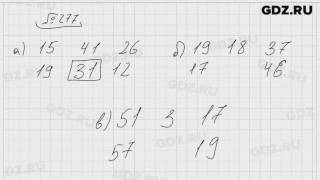 GDZ.RU
№277
а) 15 41 26 б) 19 18 37
19 31 12 17 46
в) 51 3 17
57 19